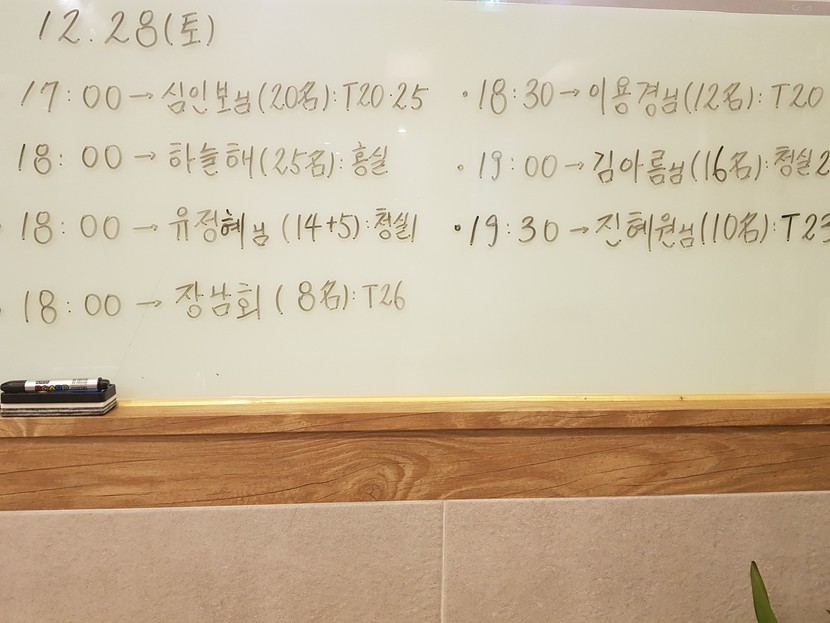 12.28(토)
17:00→심인보님(20名):T20·25
18:00→하늘해(25名):홍실
18:00→유정혜님(14+5):청실1
18:00→장남회(8名):T26
·18:30→이용경님(12名):T20
·19:00→김아름님(16名):청실2
·19:30→진혜원님(10名):T23